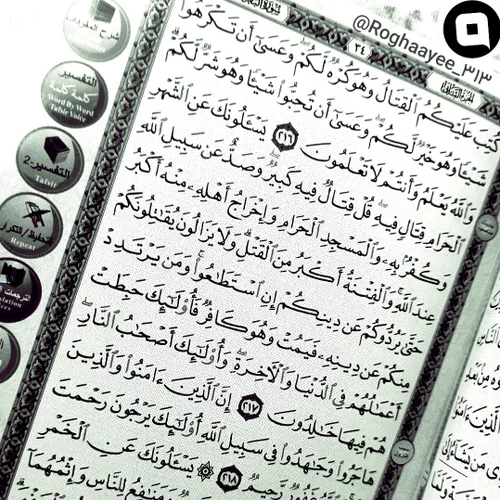 @Roghaayee_۳۱۳
٣٤
كُتِبَ عَلَيْكُمُ ٱلْقِتَالُ وَهُوَ كُرْهٌ لَّكُمْ وَعَسَىٰٓ أَن تَكْرَهُوا۟
شَيْـًٔا وَهُوَ خَيْرٌ لَّكُمْ وَعَسَىٰٓ أَن تُحِبُّوا۟ شَيْـًٔا وَهُوَ شَرٌّ لَّكُمْ
وَٱللَّهُ يَعْلَمُ وَأَنتُمْ لَا تَعْلَمُونَ ٢١٦ يَسْـَٔلُونَكَ عَنِ ٱلشَّهْرِ
ٱلْحَرَامِ قِتَالٍ فِيهِ قُلْ قِتَالٌ فِيهِ كَبِيرٌ وَصَدٌّ عَن سَبِيلِ ٱللَّهِ
وَكُفْرٌۢ بِهِۦ وَٱلْمَسْجِدِ ٱلْحَرَامِ وَإِخْرَاجُ أَهْلِهِۦ مِنْهُ أَكْبَرُ
عِندَ ٱللَّهِ وَٱلْفِتْنَةُ أَكْبَرُ مِنَ ٱلْقَتْلِ وَلَا يَزَالُونَ يُقَٰتِلُونَكُمْ
حَتَّىٰ يَرُدُّوكُمْ عَن دِينِكُمْ إِنِ ٱسْتَطَٰعُوا۟ وَمَن يَرْتَدِدْ
مِنكُمْ عَن دِينِهِۦ فَيَمُتْ وَهُوَ كَافِرٌ فَأُو۟لَٰٓئِكَ حَبِطَتْ
أَعْمَٰلُهُمْ فِى ٱلدُّنْيَا وَٱلْـَٔاخِرَةِ وَأُو۟لَٰٓئِكَ أَصْحَٰبُ ٱلنَّارِ
هُمْ فِيهَا خَٰلِدُونَ ٢١٧ إِنَّ ٱلَّذِينَ ءَامَنُوا۟ وَٱلَّذِينَ
هَاجَرُوا۟ وَجَٰهَدُوا۟ فِى سَبِيلِ ٱللَّهِ أُو۟لَٰٓئِكَ يَرْجُونَ رَحْمَتَ
رَّحِيمٌ ٢١٨ يَسْـَٔلُونَكَ عَنِ ٱلْخَمْرِ
وَمَنَٰفِعُ لِلنَّاسِ وَإِثْمُهُمَآ
شرح المفردات
التفسير
كلمة كلمة
Word By Word
Tafsir Voice
التفسير-2
Tafsir
Repeat
الترجمات